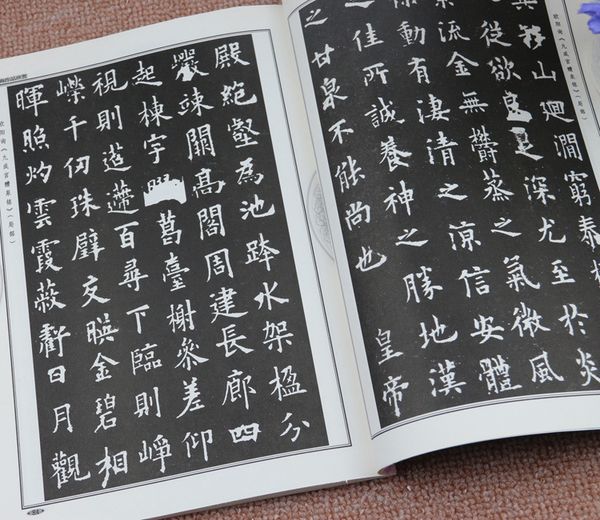 欧陽詢《九成宮醴泉銘》(局部)
移山廻澗窮泰極
從欲良足深尤至於炎
流金無鬱蒸之氣微風
動有淒清之涼信安體
之佳所誠養神之勝地漢
之甘泉不能尚也 皇帝
殿絶壑為池跨水架楹分
巖竦闕高閣周建長廊四
起棟宇膠葛臺榭參差仰
視則迢遰百尋下臨則崢
嶸千仞珠璧交暎金碧相
暉照灼雲霞蔽虧日月觀
欧陽詢《九成宮醴泉銘》(局部)